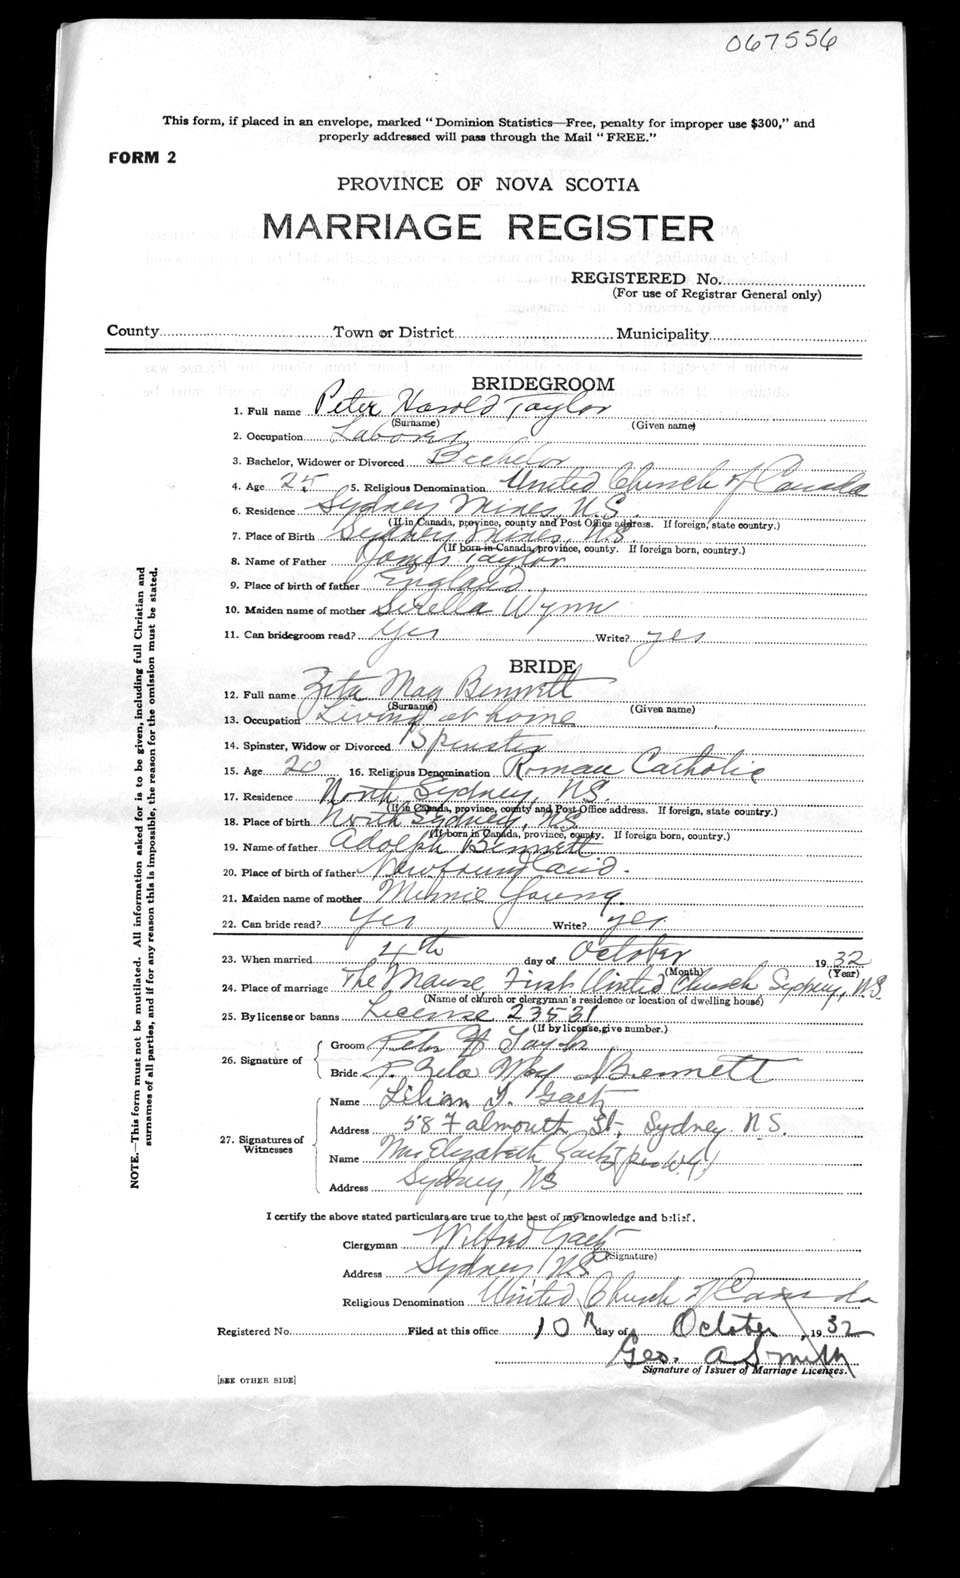 067556
This form, if placed in an envelope, marked "Dominion Statistics—Free, penalty for improper use $300," and
properly addressed will pass through the Mail "FREE."
FORM 2
PROVINCE OF NOVA SCOTIA
MARRIAGE REGISTER
REGISTERED No.
(For use of Registrar General only)
County Town or District Municipality
BRIDEGROOM
1. Full name Peter Harold Taylor
(Surname) (Given name)
2. Occupation Laborer
3. Bachelor, Widower or Divorced Bachelor
4. Age 25 5. Religious Denomination United Church of Canada
6. Residence Sydney Mines, N.S.
(If in Canada, province, county and Post Office address. If foreign, state country.)
7. Place of Birth Sydney Mines, N.S.
(If born in Canada, province, county. If foreign born, country.)
8. Name of Father James Taylor
9. Place of birth of father England
10. Maiden name of mother Wynn
11. Can bridegroom read? Yes Write? yes
BRIDE
12. Full name Zita May Bennett
(Surname) (Given name)
13. Occupation Living at home
14. Spinster, Widow or Divorced Spinster
15. Age 20 16. Religious Denomination Roman Catholic
17. Residence North Sydney, N.S.
(If in Canada, province, county and Post Office address. If foreign, state country.)
18. Place of birth North Sydney, N.S.
(If born in Canada, province, county. If foreign born, country.)
19. Name of father Adolph Bennett
20. Place of birth of father Newfoundland.
21. Maiden name of mother Minnie Young.
22. Can bride read? Yes Write? yes
23. When married 4th day of October 1932
(Month) (Year)
24. Place of marriage The Manse, First United Church, Sydney, N.S.
(Name of church or clergyman's residence or location of dwelling house)
25. By license or banns License 23531
(If by license, give number.)
26. Signature of
Groom Peter H Taylor
Bride May Bennett
27. Signatures of Witnesses
Name Lilian Gaetz
Address 58 Falmouth St, Sydney N.S.
Name Mrs Elizabeth Gaetz
Address Sydney, NS
I certify the above stated particulars are true to the best of my knowledge and belief.
Clergyman Wilfred Gaetz
(Signature)
Address Sydney, N.S.
Religious Denomination United Church of Canada
Registered No. Filed at this office 10th day of October, 1932
Geo. A Smith
Signature of Issuer of Marriage Licenses.
[SEE OTHER SIDE]
NOTE.—This form must not be mutilated. All information asked for is to be given, including full Christian and
surnames of all parties, and if for any reason this is impossible, the reason for the omission must be stated.